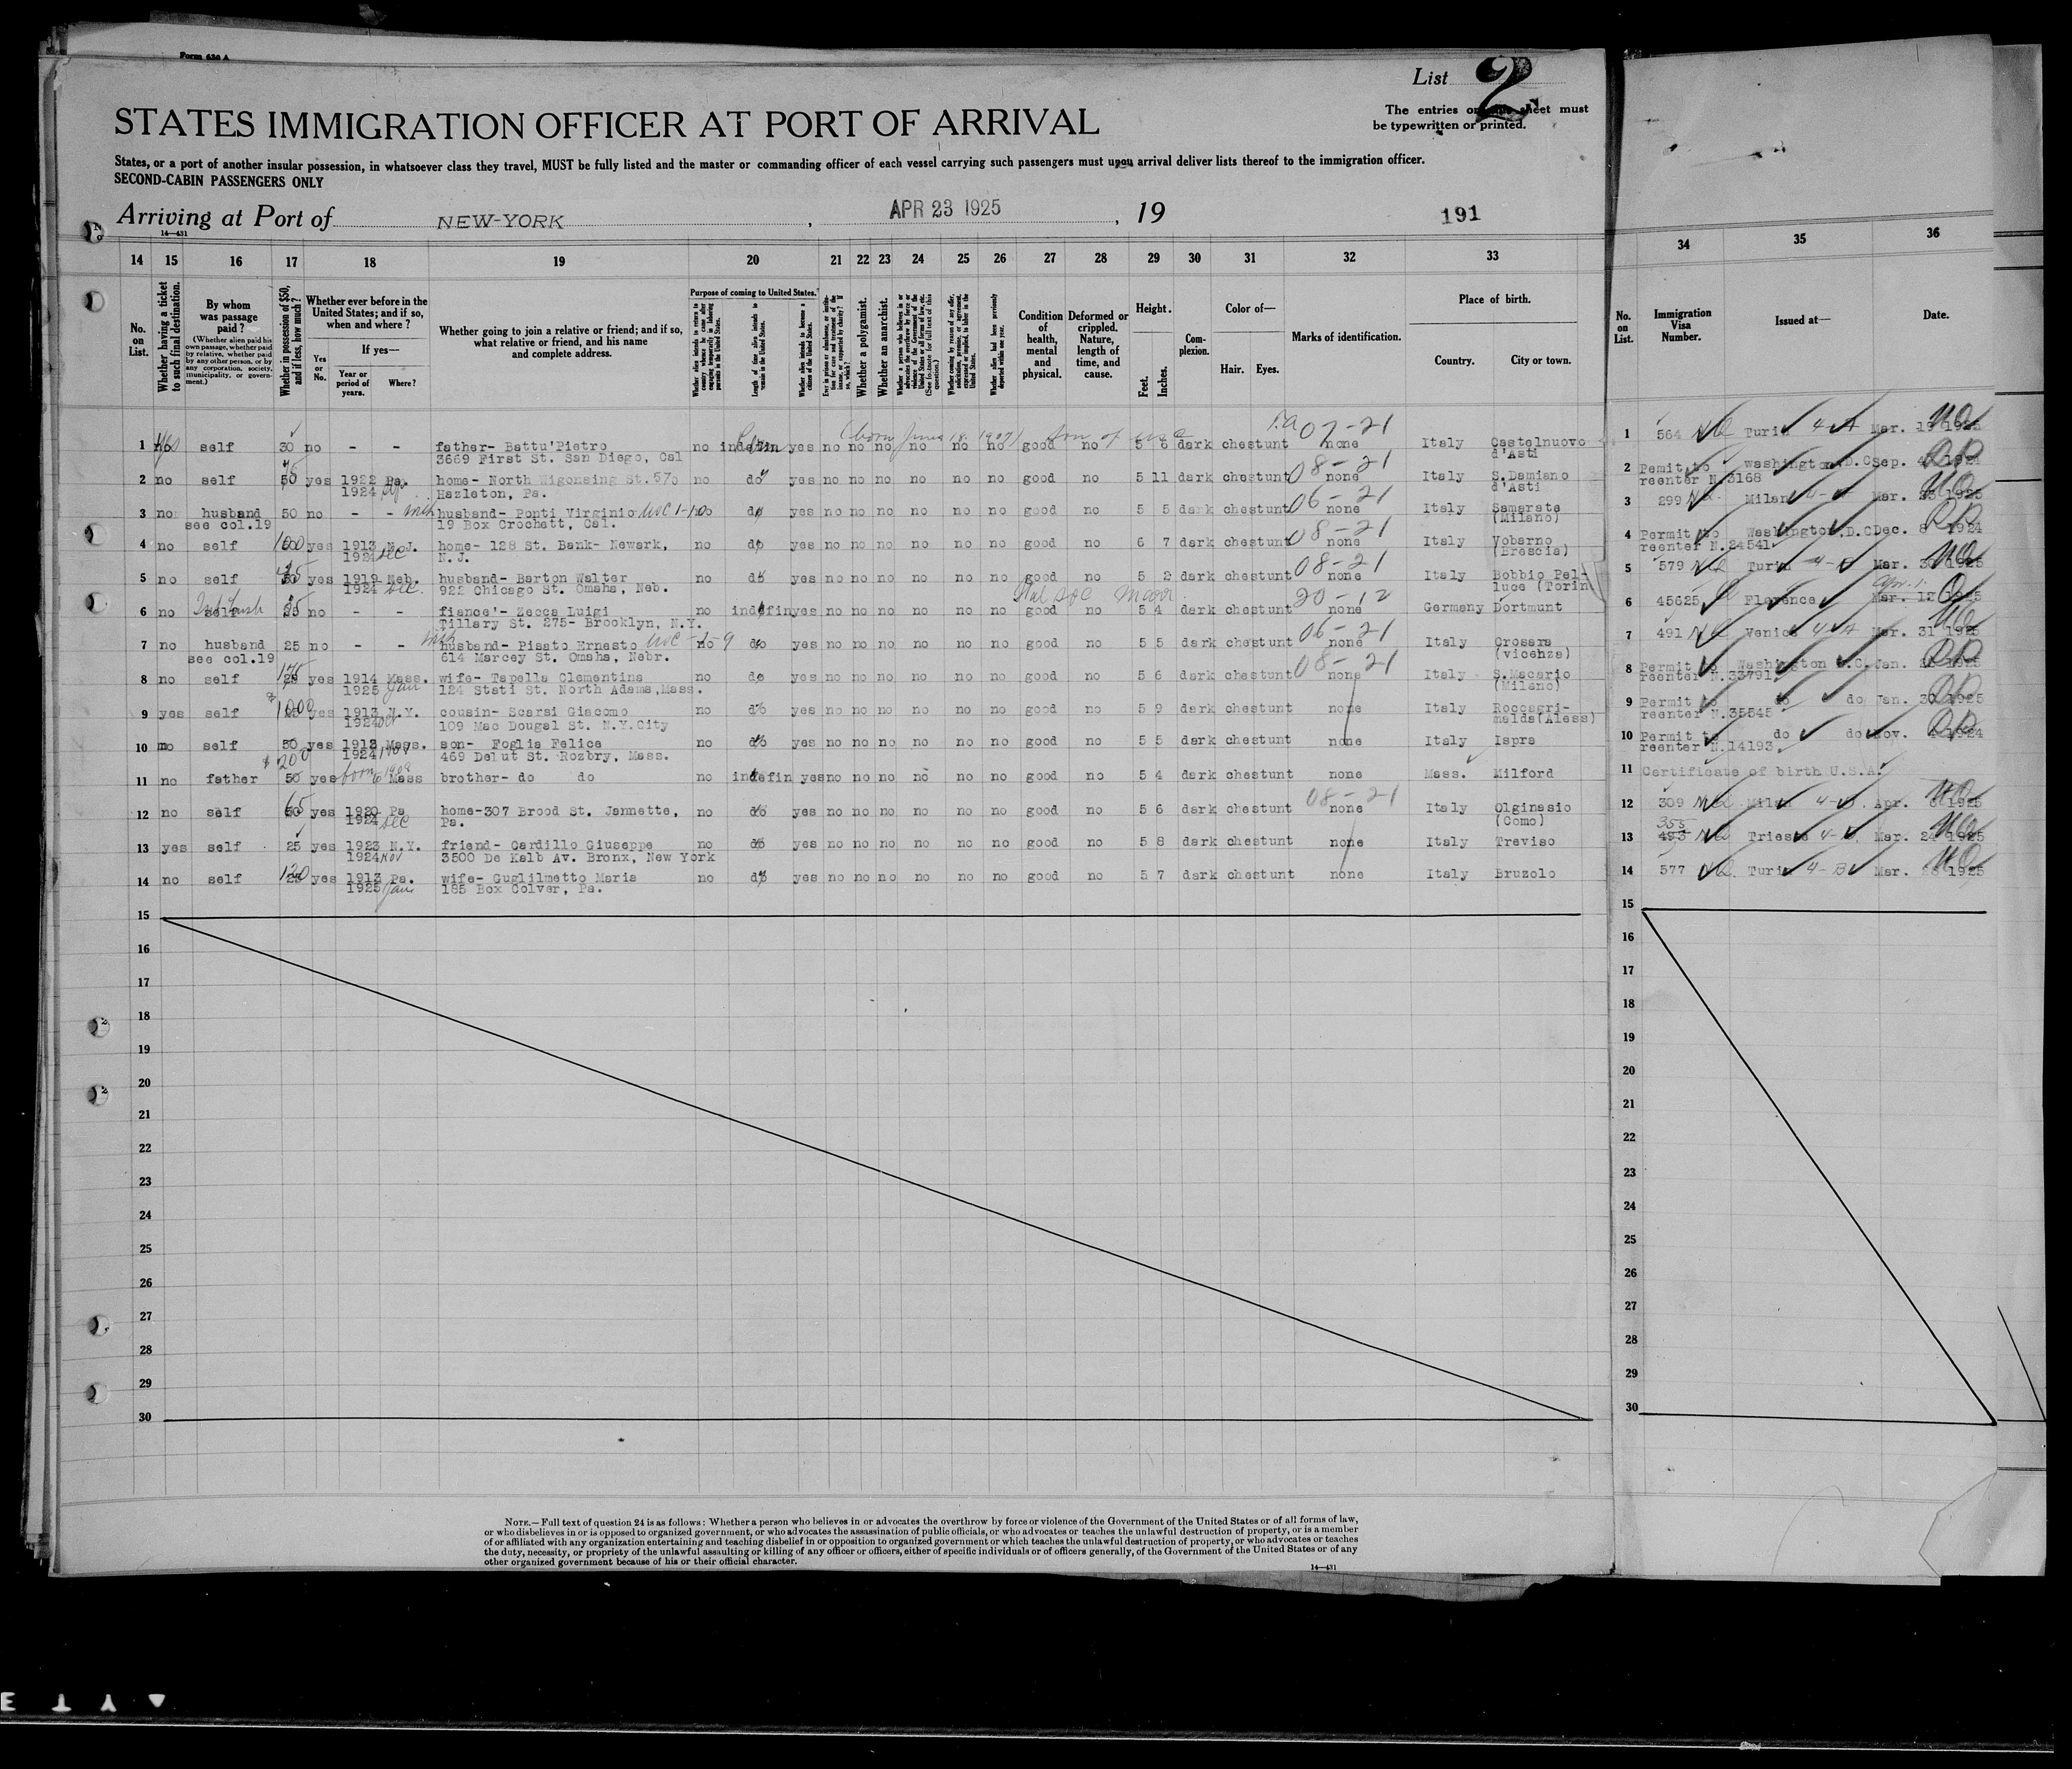 Form 630 A
List 2
The entries on this sheet must
be typewritten or printed.
STATES IMMIGRATION OFFICER AT PORT OF ARRIVAL
States, or a port of another insular possession, in whatsoever class they travel, MUST be fully listed and the master or commanding officer of each vessel carrying such passengers must upon arrival deliver lists thereof to the immigration officer.
SECOND-CABIN PASSENGERS ONLY
Arriving at Port of NEW-YORK , APR 23 1925 , 19 191
14—431
14 15 16 17 18 19 20 21 22 23 24 25 26 27 28 29 30 31 32 33 34 35 36
No. on List.
Whether having a ticket to such final destination.
By whom was passage paid?
(Whether alien paid his own passage, whether paid by relative, whether paid by any other person, or by any corporation, society, municipality, or government.)
Whether in possession of $50, and if less, how much?
Whether ever before in the United States; and if so, when and where?
Yes or No.
If yes—
Year or period of years.
Where?
Whether going to join a relative or friend; and if so, what relative or friend, and his name and complete address.
Purpose of coming to United States.
Length of time alien intends to remain in the United States.
Whether alien intends to become a citizen of the United States.
Whether a polygamist.
Whether an anarchist.
Condition of health, mental and physical.
Deformed or crippled. Nature, length of time, and cause.
Height.
Feet. Inches.
Complexion.
Color of—
Hair. Eyes.
Marks of identification.
Place of birth.
Country. City or town.
No. on List.
Immigration Visa Number.
Issued at—
Date.
(born June 18. 1907) son of USC 07-21
1 yes self 30 no - - father- Battu'Pietro no indefin yes no no no no no no good no 5 6 dark chestunt none Italy Castelnuovo 1 564 Turin 4-A Mar. 19 1925
3669 First St. San Diego, Cal d'Asti
08-21
2 no self 50 yes 1922 Pa. home- North Wigonsing St. 570 no do yes no no no no no no good no 5 11 dark chestunt none Italy S.Damiano 2 Pemit to Washington,D.C Sep. 1924
1924 Hazleton, Pa. d'Asti reenter N.3168
06-21
3 no husband 50 no - - husband- Ponti Virginio USC no do yes no no no no no no good no 5 5 dark chestunt none Italy Samarate 3 299 Milan 4-A Mar. 1925
see col.19 19 Box Crochett, Cal. (Milano)
08-21
4 no self 100 yes 1913 N.J. home- 128 St. Bank- Newark, no do yes no no no no no no good no 6 7 dark chestunt none Italy Vobarno 4 Permit to Washington,D.C Dec. 8 1924
1924 Dec N.J. (Brescia) reenter N.24541
08-21
5 no self yes 1919 Neb. husband- Barton Walter no do yes no no no no no no good no 5 2 dark chestunt none Italy Bobbio Pel- 5 579 Turin Mar. 1925
1924 Dec. 922 Chicago St. Omaha, Neb. luce (Torin
20-12
6 no self 25 no - - fiance'- Zecca Luigi no indefin yes no no no no no no good no 5 4 dark chestunt none Germany Dortmunt 6 45625 Florence Mar. 12 1925
Tillary St. 275- Brooklyn, N.Y.
06-21
7 no husband 25 no - - husband- Pisato Ernesto USC no do yes no no no no no no good no 5 5 dark chestunt none Italy Crosara 7 491 Venice 4-A Mar. 31 1925
see col.19 614 Marcey St. Omaha, Nebr. (vicenza)
08-21
8 no self yes 1914 Mass. wife- Tapella Clementina no do yes no no no no no no good no 5 6 dark chestunt none Italy S.Macario 8 Permit to Washington D.C. Jan. 1925
1925 Jan 124 Stati St. North Adams,Mass. (Milano) reenter N.33791
9 yes self 1000 yes 1913 N.Y. cousin- Scarsi Giacomo no do yes no no no no no no good no 5 9 dark chestunt none Italy Roccagri- 9 Permit to do do Jan. 30 1925
1924 Oct 109 Mac Dougal St. N.Y.City malda(Aless) reenter N.35545
10 no self 50 yes 1913 Mass. son- Foglia Felice no do yes no no no no no no good no 5 5 dark chestunt none Italy Ispra 10 Permit to do do Nov. 1924
$ 200 1924 Nov 469 Delut St. Rozbry, Mass. reenter N.14193
11 no father 50 yes born Mass brother- do do no indefin yes no no no no no no good no 5 4 dark chestunt none Mass. Milford 11 Certificate of birth U.S.A.
08-21
12 no self 65 yes 1920 Pa home-307 Brood St. Jannette, no do yes no no no no no no good no 5 6 dark chestunt none Italy Olginasio 12 309 Milan Apr. 1925
1924 Dec Pa. (Como)
13 yes self 25 yes 1923 N.Y. friend- Cardillo Giuseppe no do yes no no no no no no good no 5 8 dark chestunt none Italy Treviso 13 493 353 Trieste Mar. 1925
1924 Nov 3500 De Kalb Av. Bronx, New York
14 no self 120 yes 1913 Pa. wife- Guglilmetto Maria no do yes no no no no no no good no 5 7 dark chestunt none Italy Bruzolo 14 577 Turin 4-B Mar. 1925
1925 Jan 185 Box Colver, Pa.
15 15
16 16
17 17
18 18
19 19
20 20
21 21
22 22
23 23
24 24
25 25
26 26
27 27
28 28
29 29
30 30
NOTE.—Full text of question 24 is as follows: Whether a person who believes in or advocates the overthrow by force or violence of the Government of the United States or of all forms of law,
or who disbelieves in or is opposed to organized government, or who advocates the assassination of public officials, or who advocates or teaches the unlawful destruction of property, or is a member
of or affiliated with any organization entertaining and teaching disbelief in or opposition to organized government or which teaches the unlawful destruction of property, or who advocates or teaches
the duty, necessity, or propriety of the unlawful assaulting or killing of any officer or officers, either of specific individuals or of officers generally, of the Government of the United States or of any
other organized government because of his or their official character.
14—431